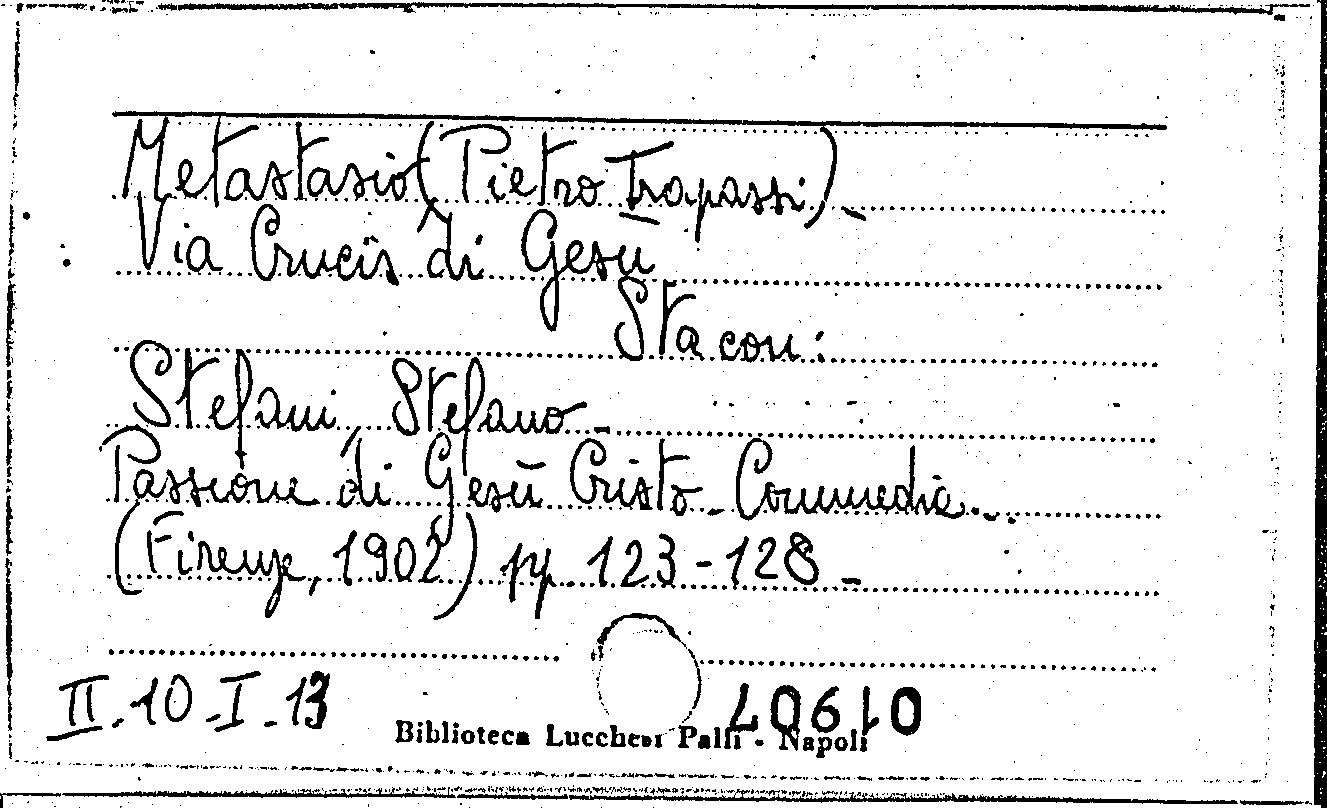 Metastasio (Pietro Trapassi) -
Via Crucis di Gesù
Sta con:
Stefani, Stefano -
Passione di Gesù Cristo - Commedia...
(Firenze, 1902) pp. 123-128 -
II.-10-I-13
Biblioteca Lucchesi Palli - Napoli